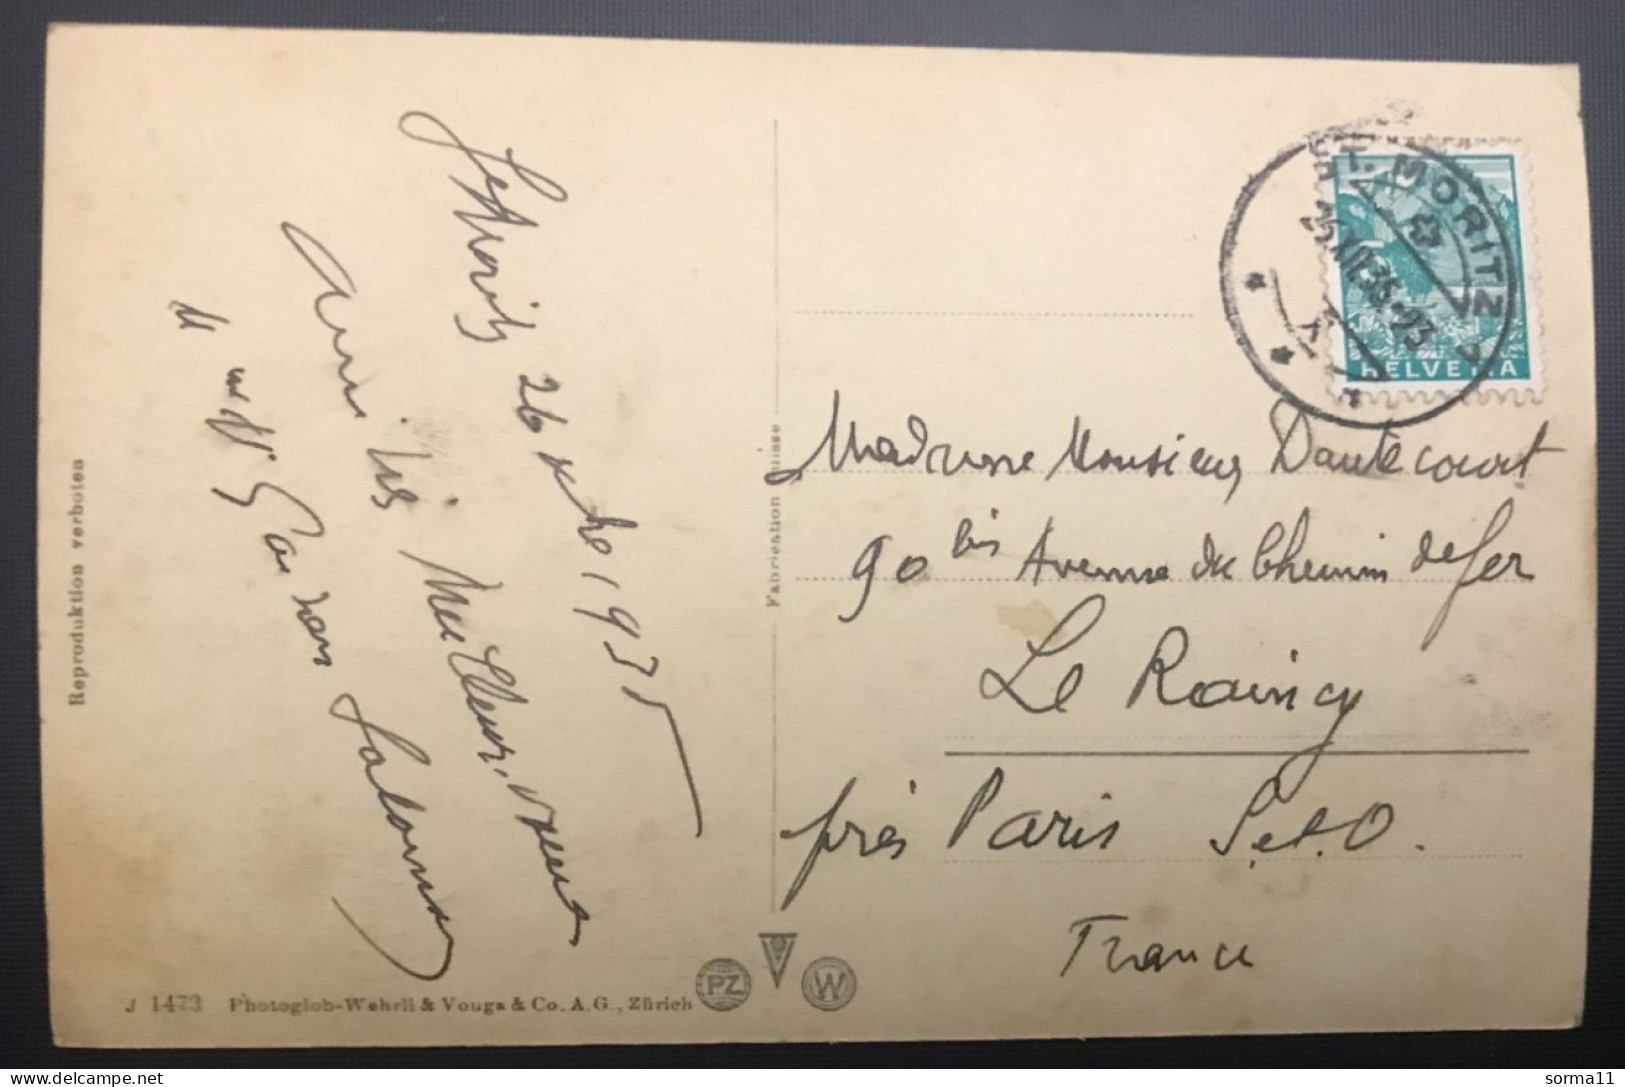 St Moritz 26 xbre 1935
Avec nos Meilleurs vœux
Reproduktion verboten
J 1473 Photoglob-Wehrli & Vouga & Co. A.G., Zürich
Fabrication Suisse
PZ
W
ST. MORITZ
26.XII.35-23
HELVETIA
Madame Monsieur Dautecourt
90 bis Avenue du Chemin de fer
Le Raincy
près Paris S. et. O.
France
sorma11